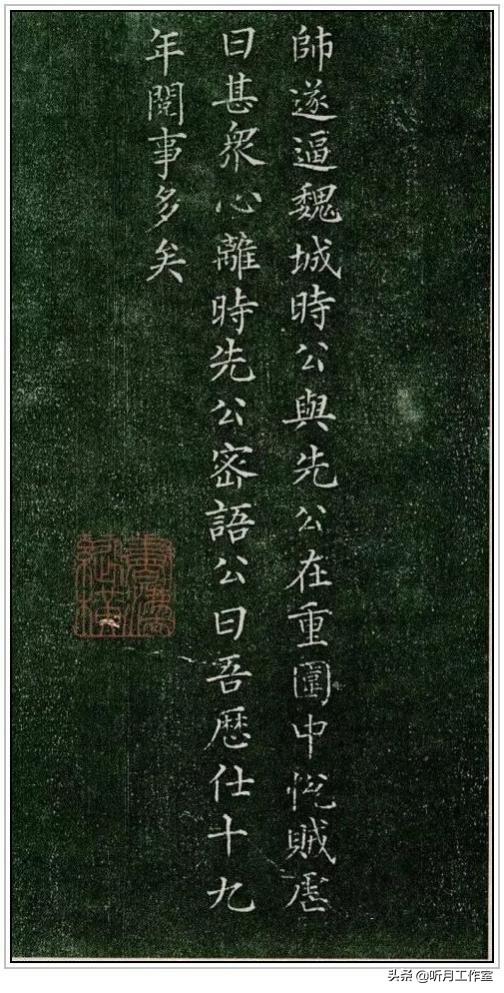 師遂逼魏城時公與先公在重圍中賊虐
日甚衆心離時先公密語公曰吾歷仕十九
年閱事多矣
头条 @听月工作室